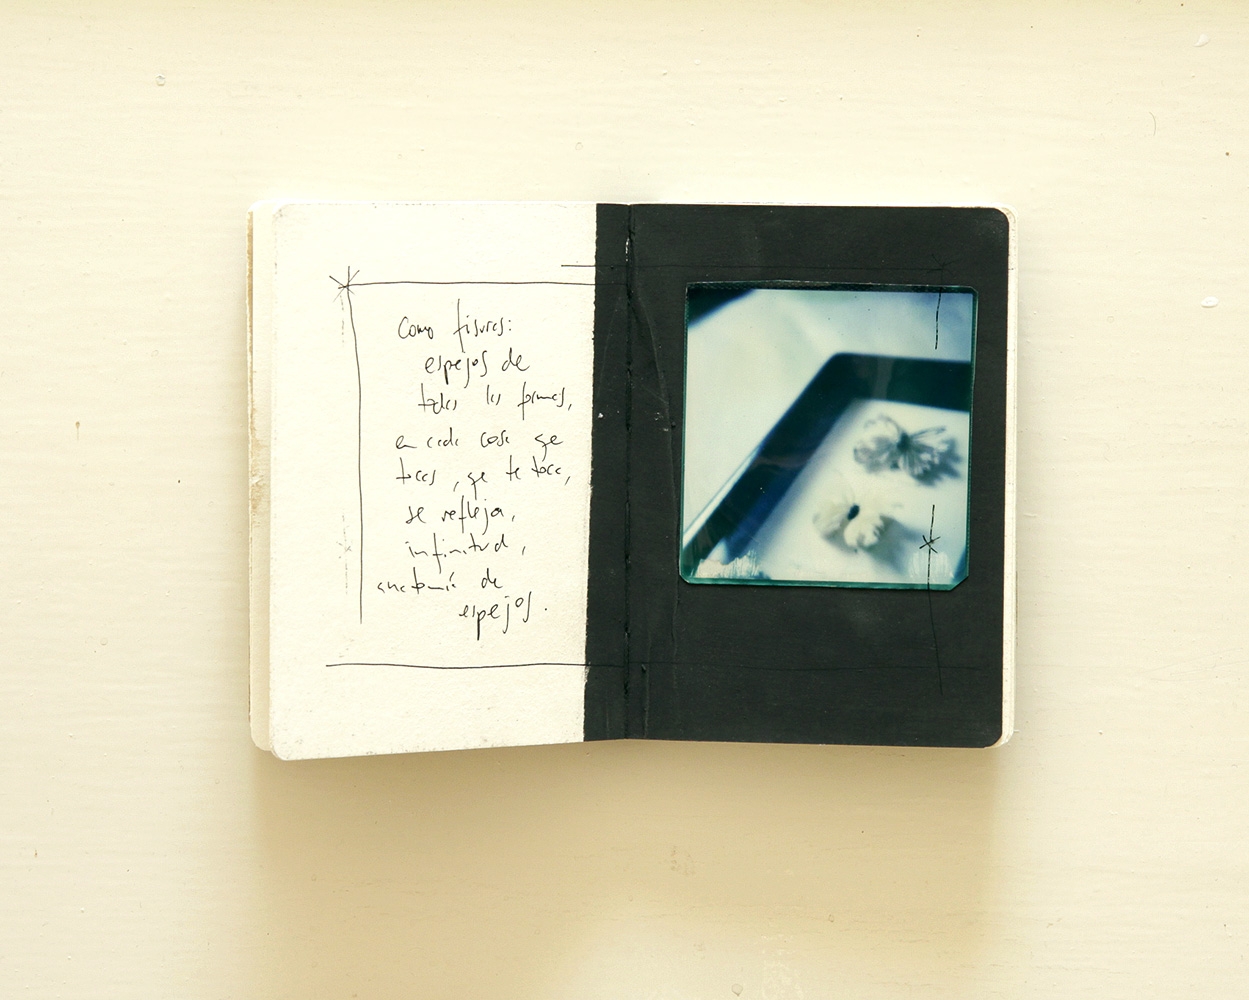 Como fisuras:
espejos de
todas las formas,
en cada cosa qe
tocas, qe te toca,
se refleja,
infinitud,
anatomía de
espejos.